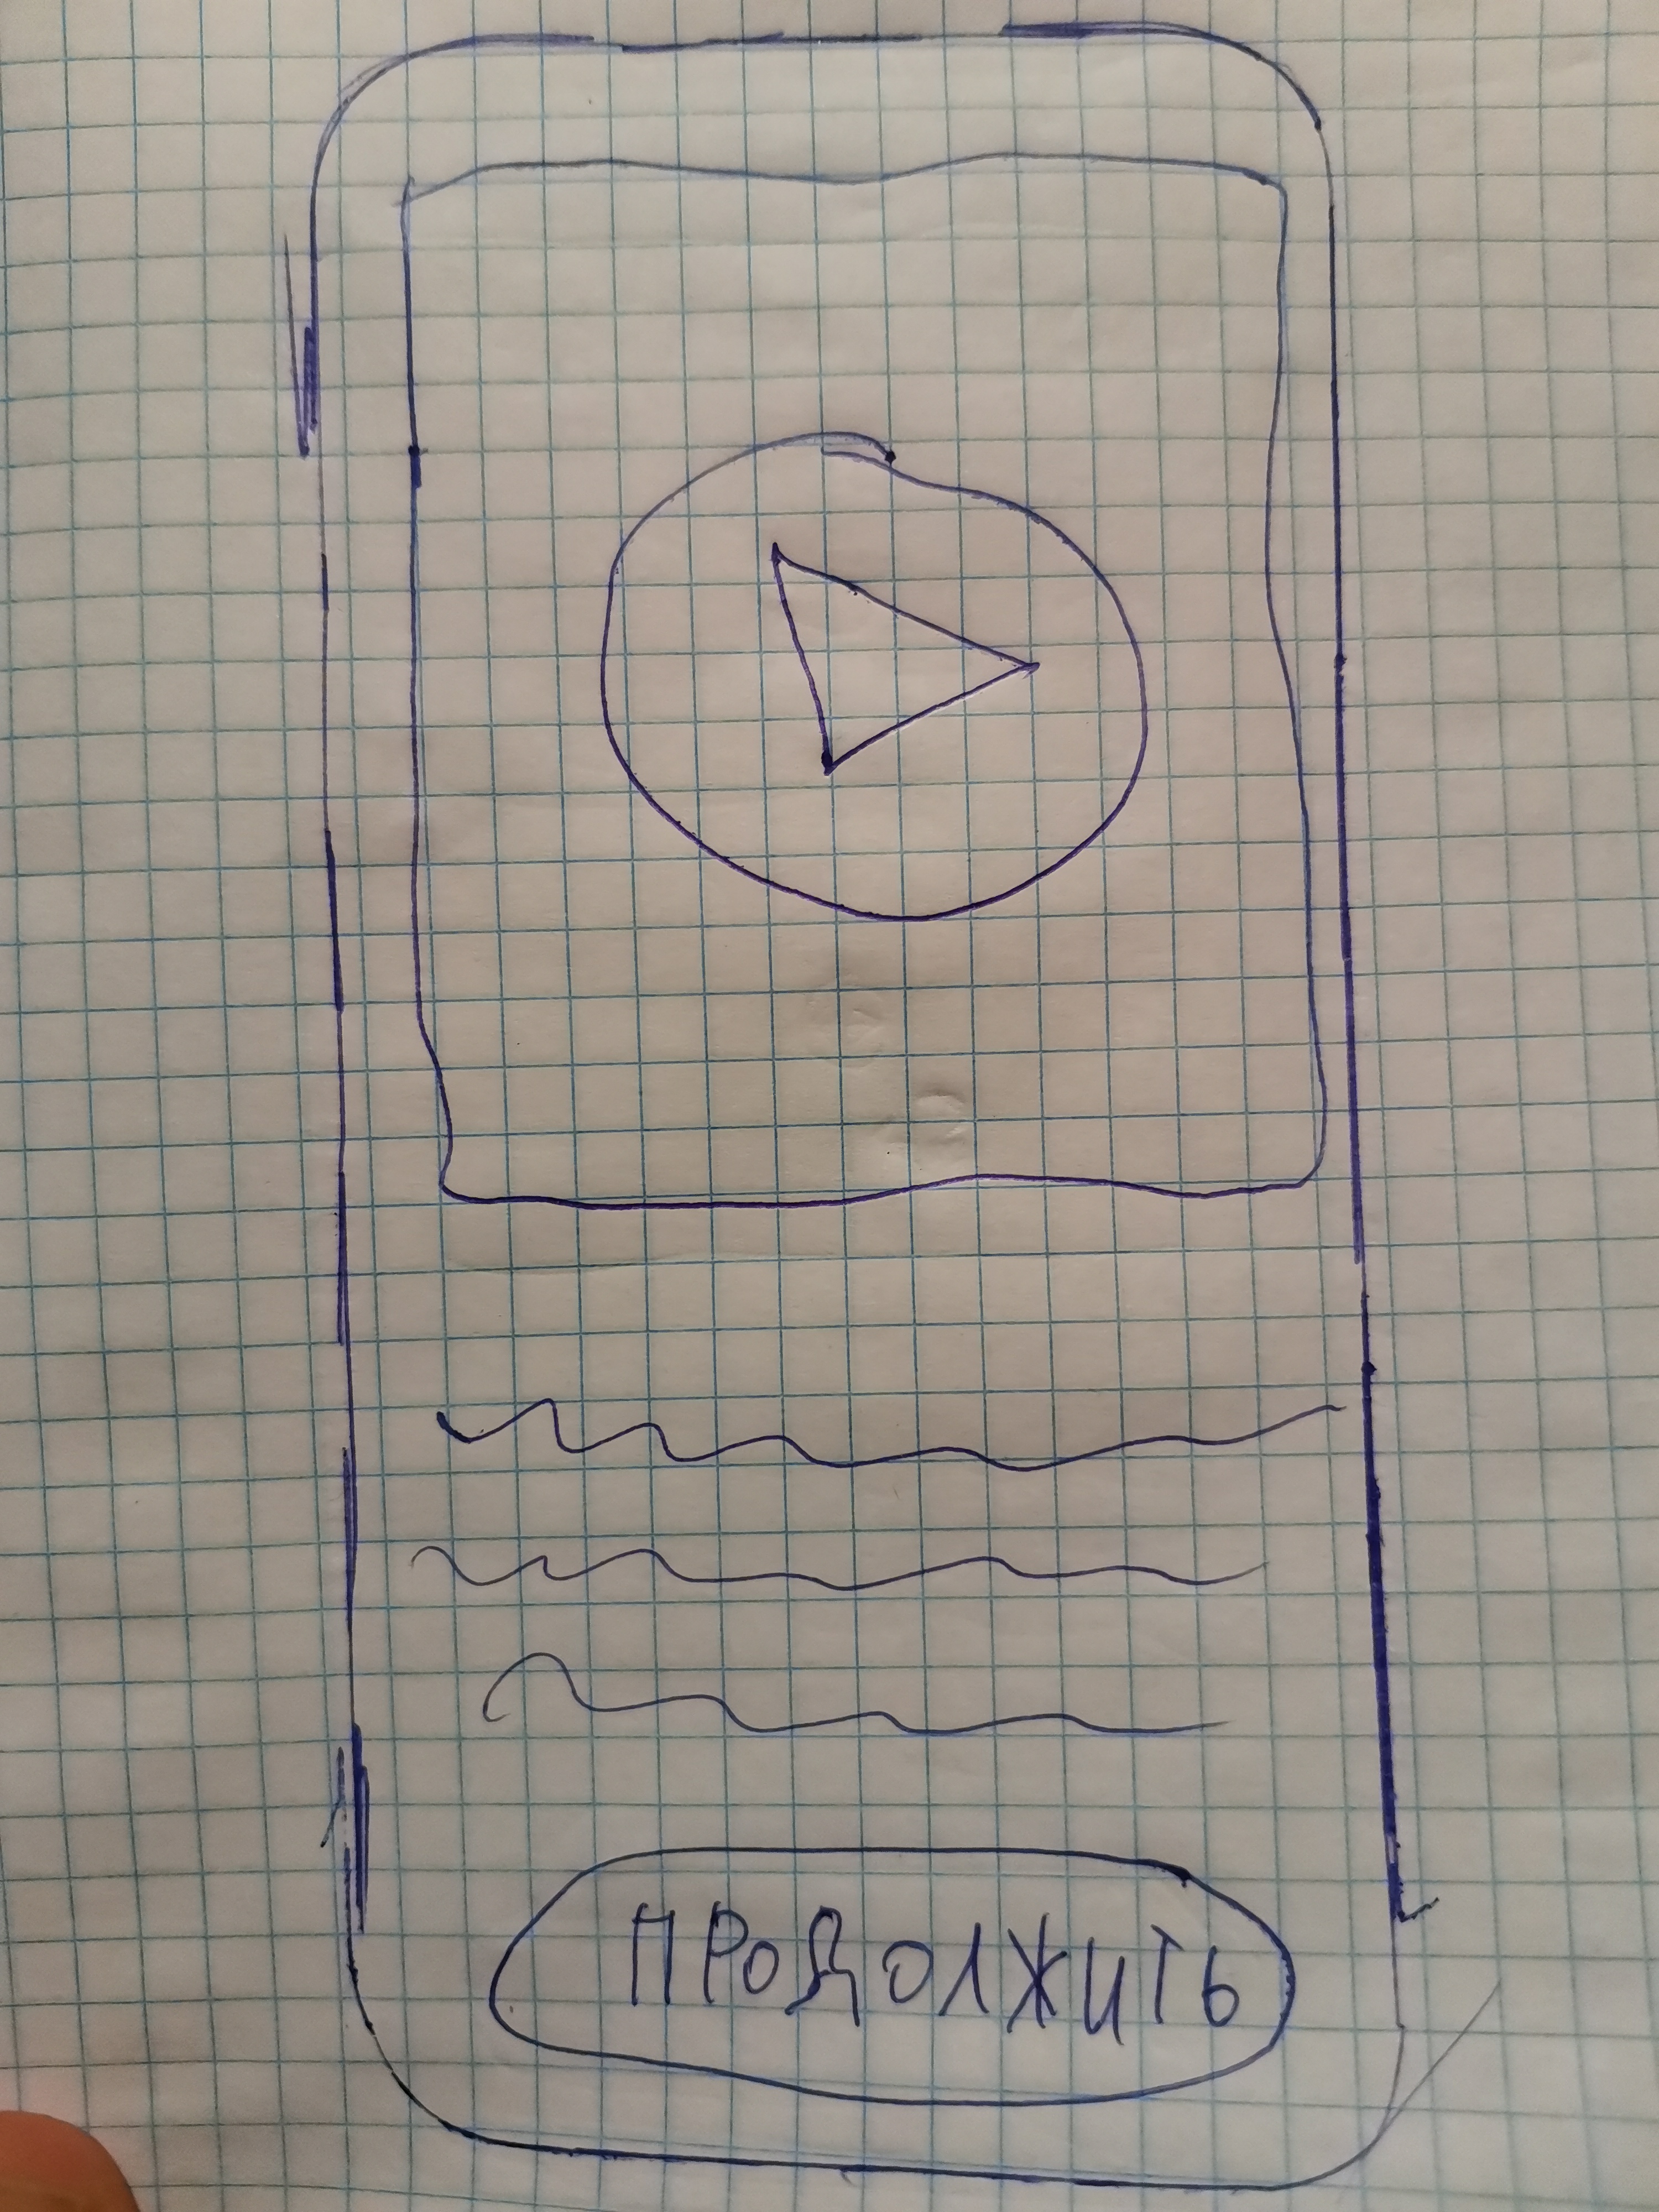 ПРОДОЛЖИТЬ